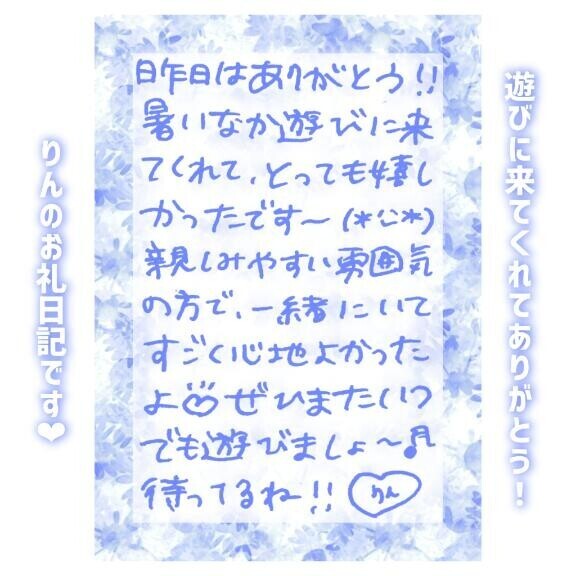 遊びに来てくれてありがとう！
昨日はありがとう!!
暑いなか遊びに来
てくれて、とっても嬉し
かったです〜(*^^*)
親しみやすい雰囲気
の方で、一緒にいて
すごく心地よかった
よ♡ぜひまたいつ
でも遊びましょ〜♬
待ってるね!!りん
りんのお礼日記です❤